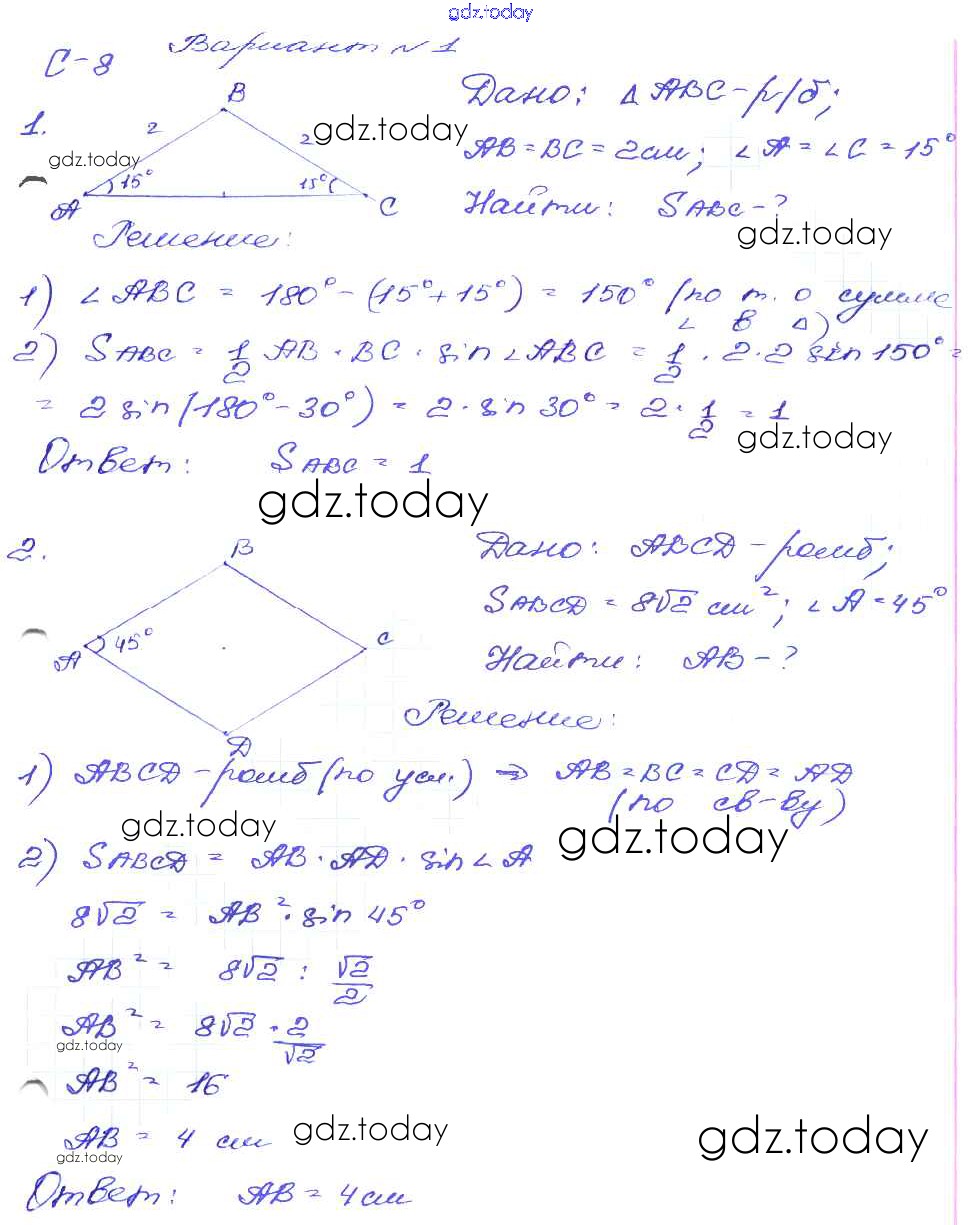 gdz.today
С-8 Вариант №1
1.
B
2
2
gdz.today
gdz.today
15°
15°
A
C
Дано: △ABC-р/б;
AB=BC=2см; ∠A=∠C=15°
Найти: S ABC-?
gdz.today
Решение:
1) ∠ABC = 180°-(15°+15°) = 150° (по т. о сумме
∠ в △)
2) S ABC = 1/2 AB · BC · sin∠ABC = 1/2 · 2·2 sin150° =
= 2 sin(180°-30°) = 2· sin30° = 2· 1/2 = 1
gdz.today
Ответ: S ABC = 1
gdz.today
2.
B
45°
A
C
D
Дано: ABCD-ромб;
S ABCD = 8√2 см²; ∠A=45°
Найти: AB-?
Решение:
1) ABCD-ромб(по усл.) ⇒ AB=BC=CD=AD
(по св-ву)
gdz.today
gdz.today
2) S ABCD = AB·AD·sin∠A
8√2 = AB²·sin45°
AB² = 8√2 : √2/2
AB² = 8√2 · 2/√2
gdz.today
AB² = 16
AB = 4 см
gdz.today
gdz.today
gdz.today
Ответ: AB=4см